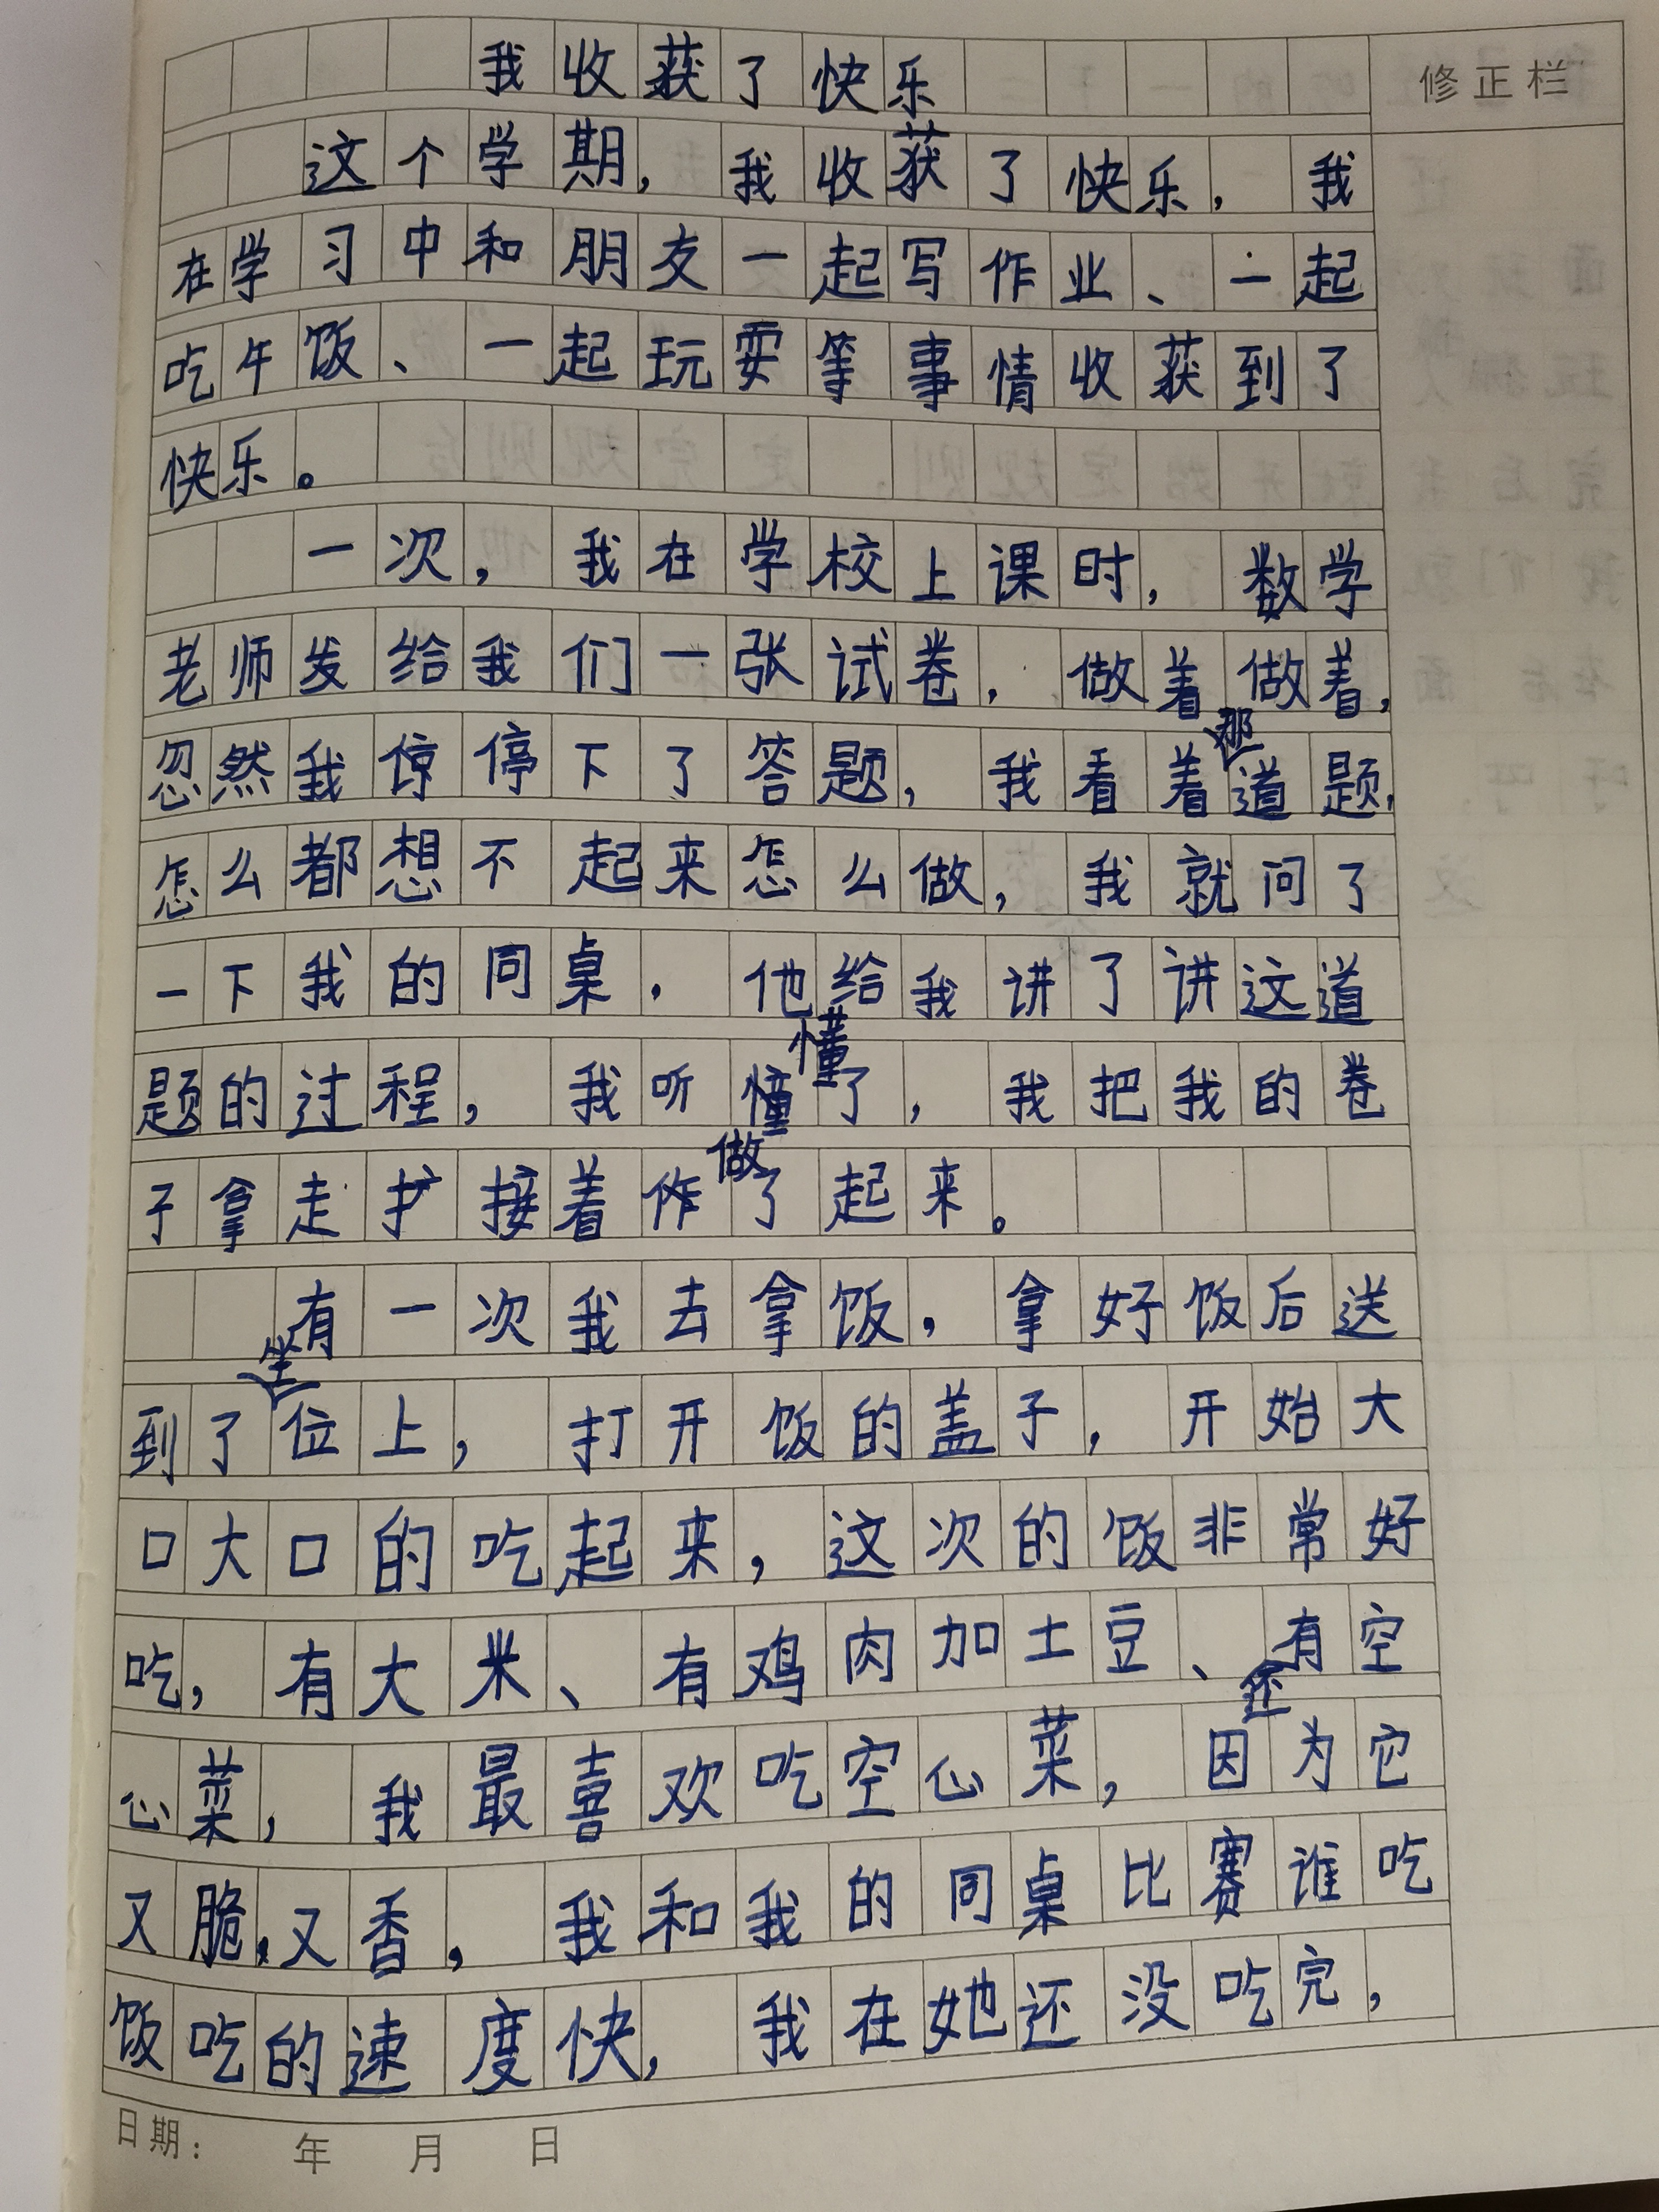 我收获了快乐
修正栏
这个学期，我收获了快乐，我
在学习中和朋友一起写作业、一起
吃午饭、一起玩耍等事情收获到了
快乐。
一次，我在学校上课时，数学
老师发给我们一张试卷，做着做着，
忽然我惊停下了答题，我看着那道题，
怎么都想不起来怎么做，我就问了
一下我的同桌，他给我讲了讲这道
懂
题的过程，我听懂了，我把我的卷
做
子拿走扩接着作了起来。
有一次我去拿饭，拿好饭后送
到了坐位上，打开饭的盖子，开始大
口大口的吃起来，这次的饭非常好
吃，有大米、有鸡肉加土豆、还有空
心菜，我最喜欢吃空心菜，因为它
又脆，又香，我和我的同桌比赛谁吃
饭吃的速度快，我在她还没吃完，
日期：年 月 日